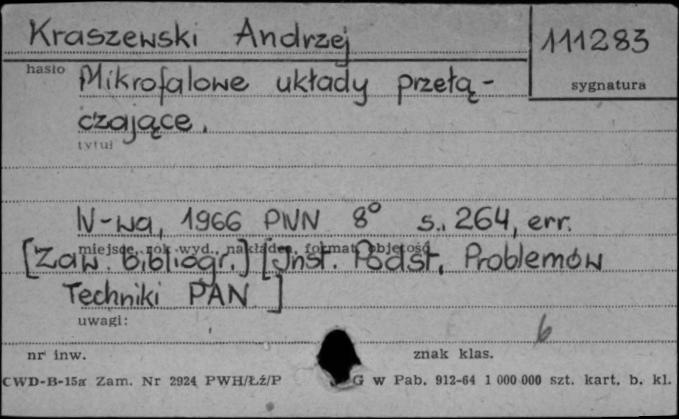 Kraszewski Andrzej 111283
hasło sygnatura
Mikrofalowe układy przełą-
czające.
tytuł
W-wa, 1966 PWN 8° s. 264, err.
miejsce, rok wyd., nakładca, format, objętość
[Zaw. bibliogr.] [Inst. Podst. Problemów
Techniki PAN]
uwagi:
6
nr inw. znak klas.
CWD-B-15a Zam. Nr 2924 PWH/Łź/P G w Pab. 912-64 1 000 000 szt. kart. b. kl.